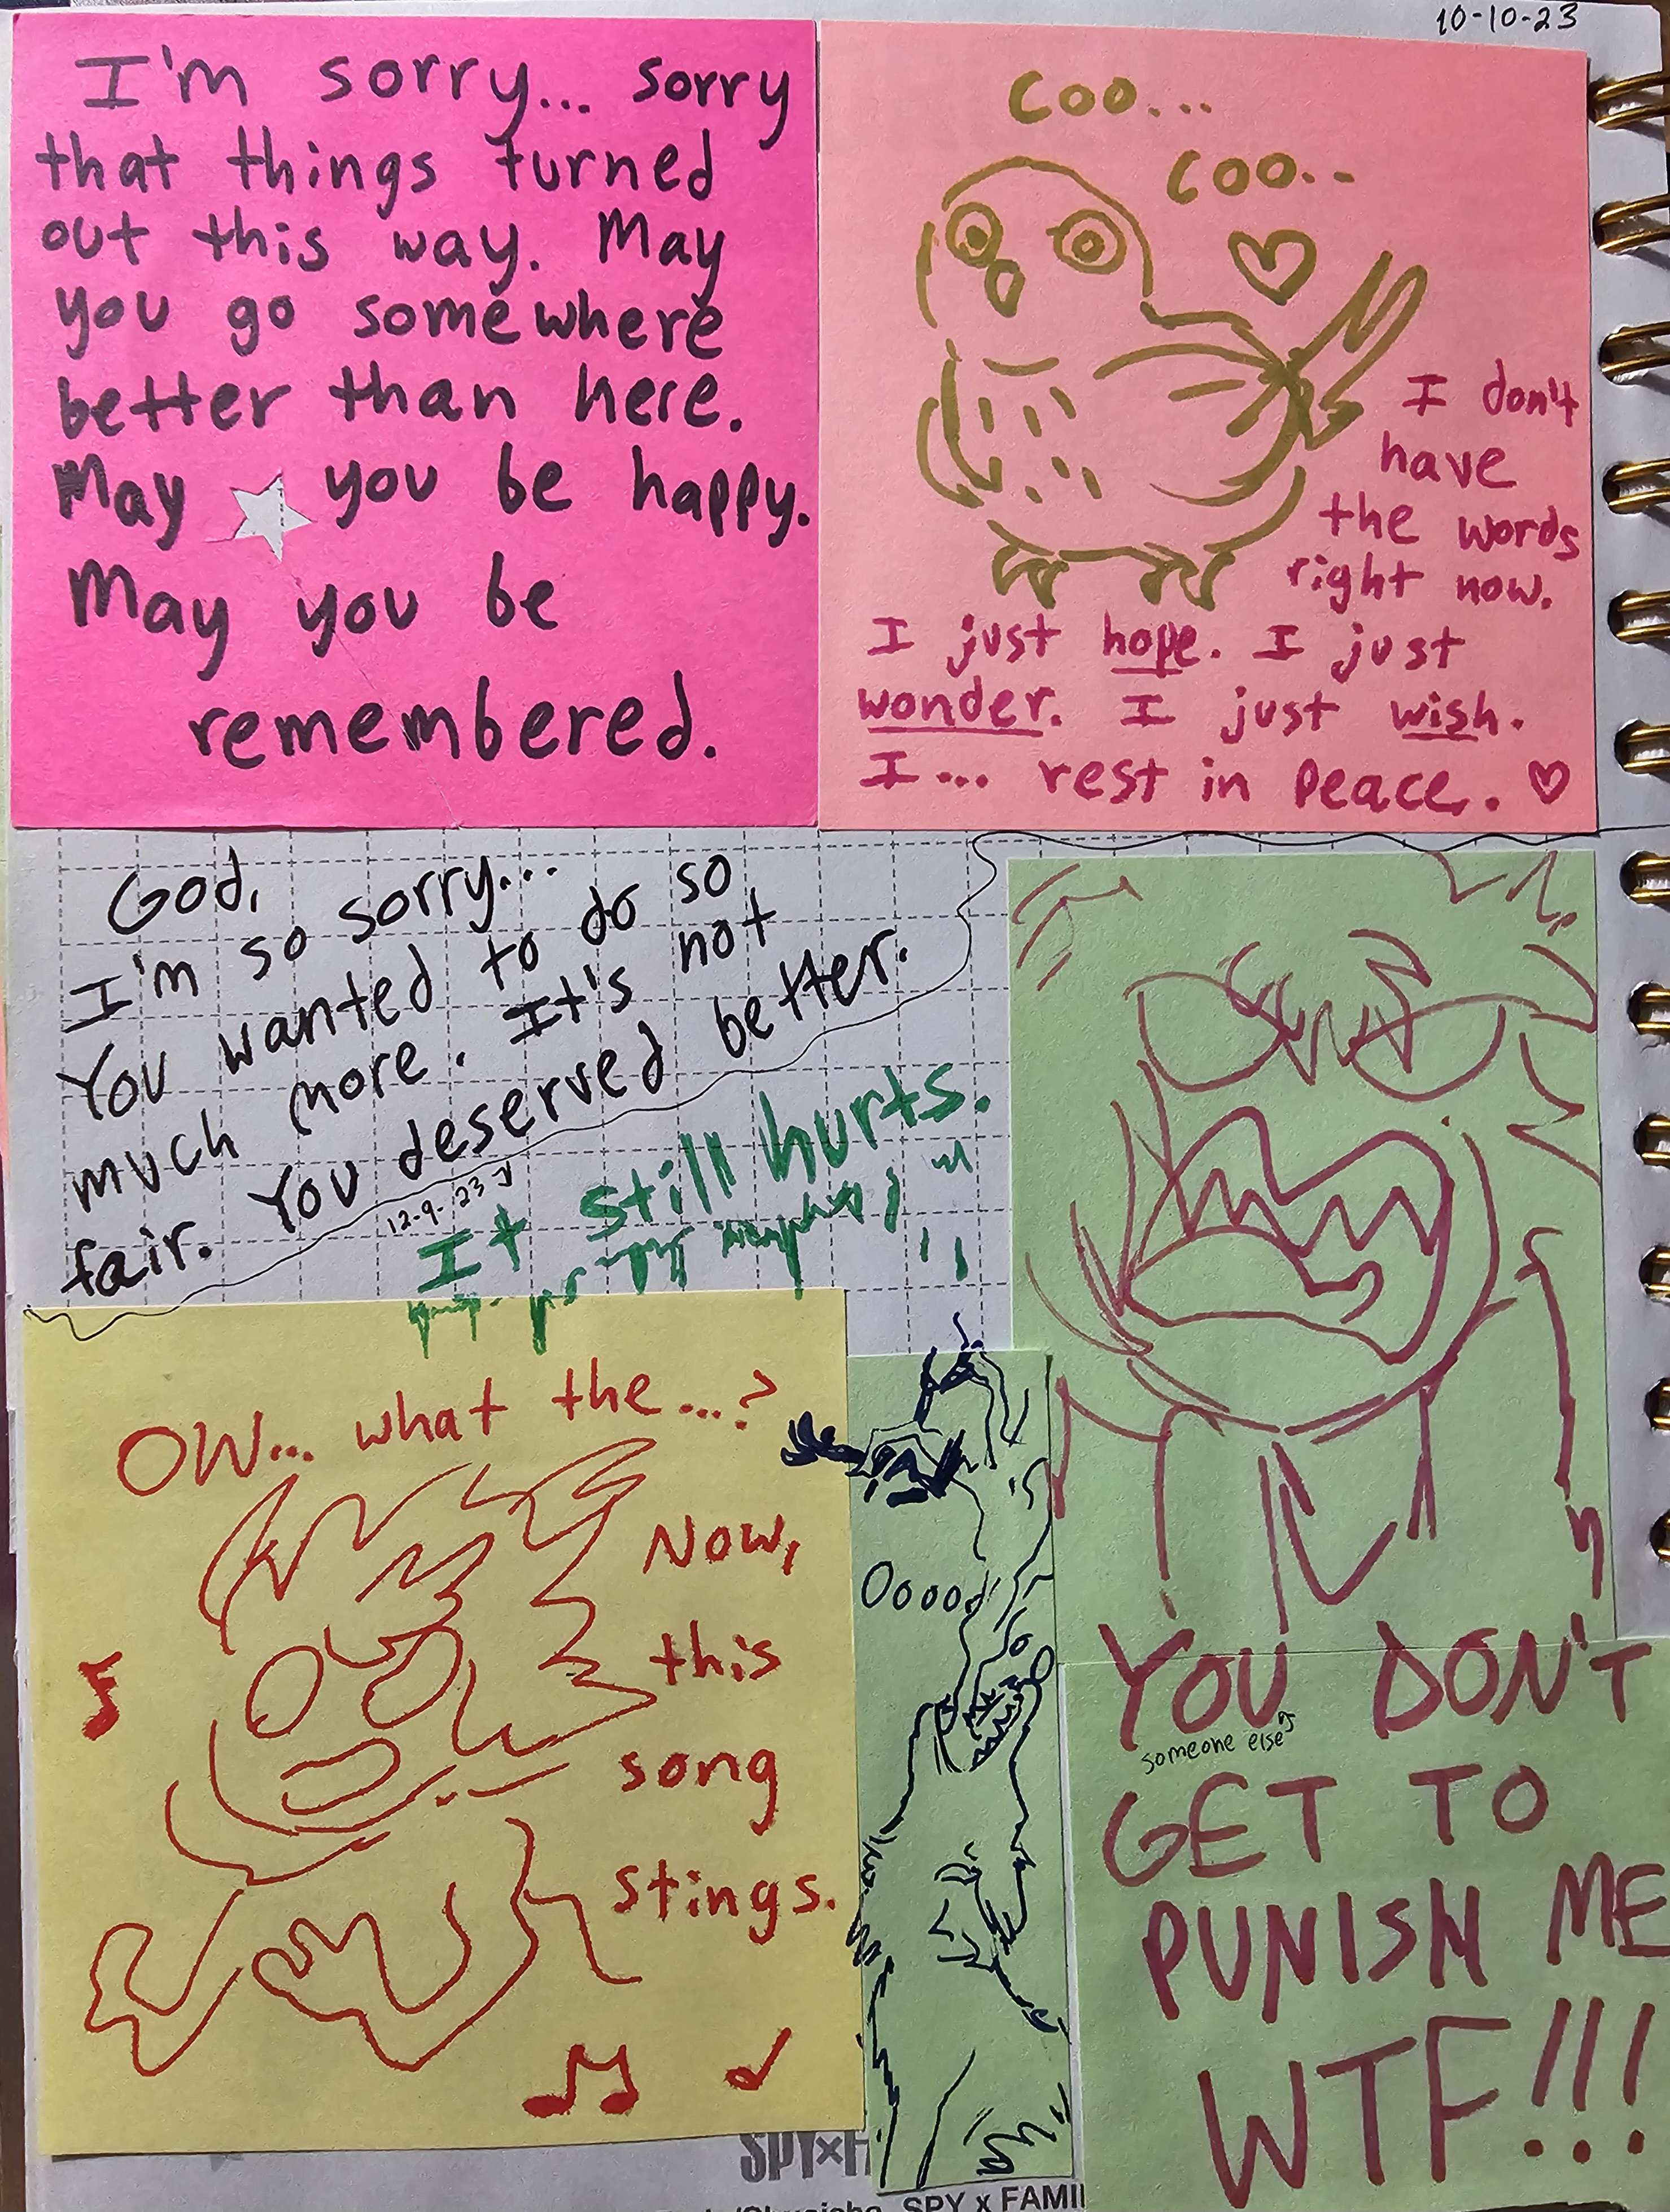 10-10-23
I'm sorry... sorry
that things turned
out this way. May
you go somewhere
better than here.
May you be happy.
May you be
remembered.
COO...
COO..
I don't
have
the words
right now.
I just hope. I just
wonder. I just wish.
I... rest in peace.
God,
I'm so sorry...
You wanted to do so
much more. It's not
fair. You deserved better.
12-9-23
It still hurts.
OW... what the...?
Now,
this
song
stings.
Oooo
YOU DON'T
someone else
GET TO
PUNISH ME
WTF!!!
SPY×F
SPY x FAMI